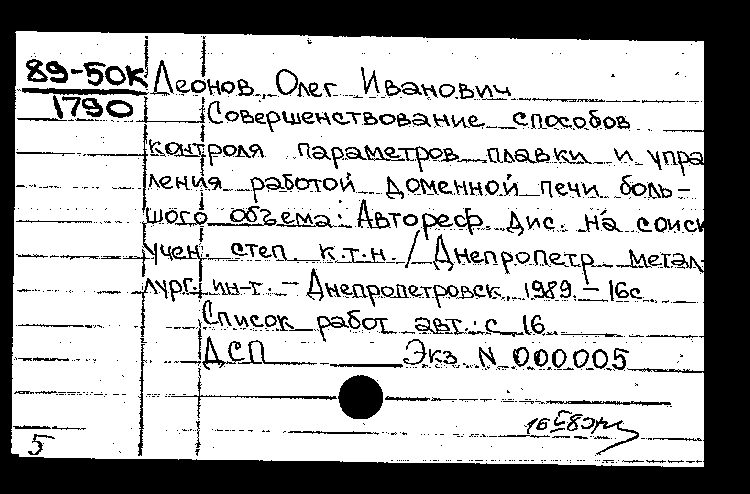 89-50К
1790
Леонов, Олег Иванович
Совершенствование способов
контроля параметров плавки и упра
ления работой доменной печи боль-
шого объема: Автореф. дис. на соиск
учен. степ. к.т.н. / Днепропетр. метал-
лург. ин-т. - Днепропетровск, 1989. - 16с
Список работ авт.: с. 16
ДСП Экз. N 000005
5